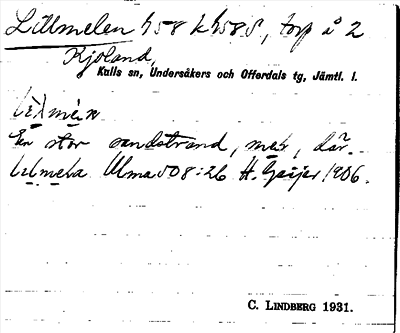 Lillmelen h58 k h58 S, torp å 2
Kjoland,
Kalls sn, Undersåkers och Offerdals tg, Jämtl. l.
En stor sandstrand, mel, där.
Ulma 508:26 H. Geijer 1906.
C. LINDBERG 1931.